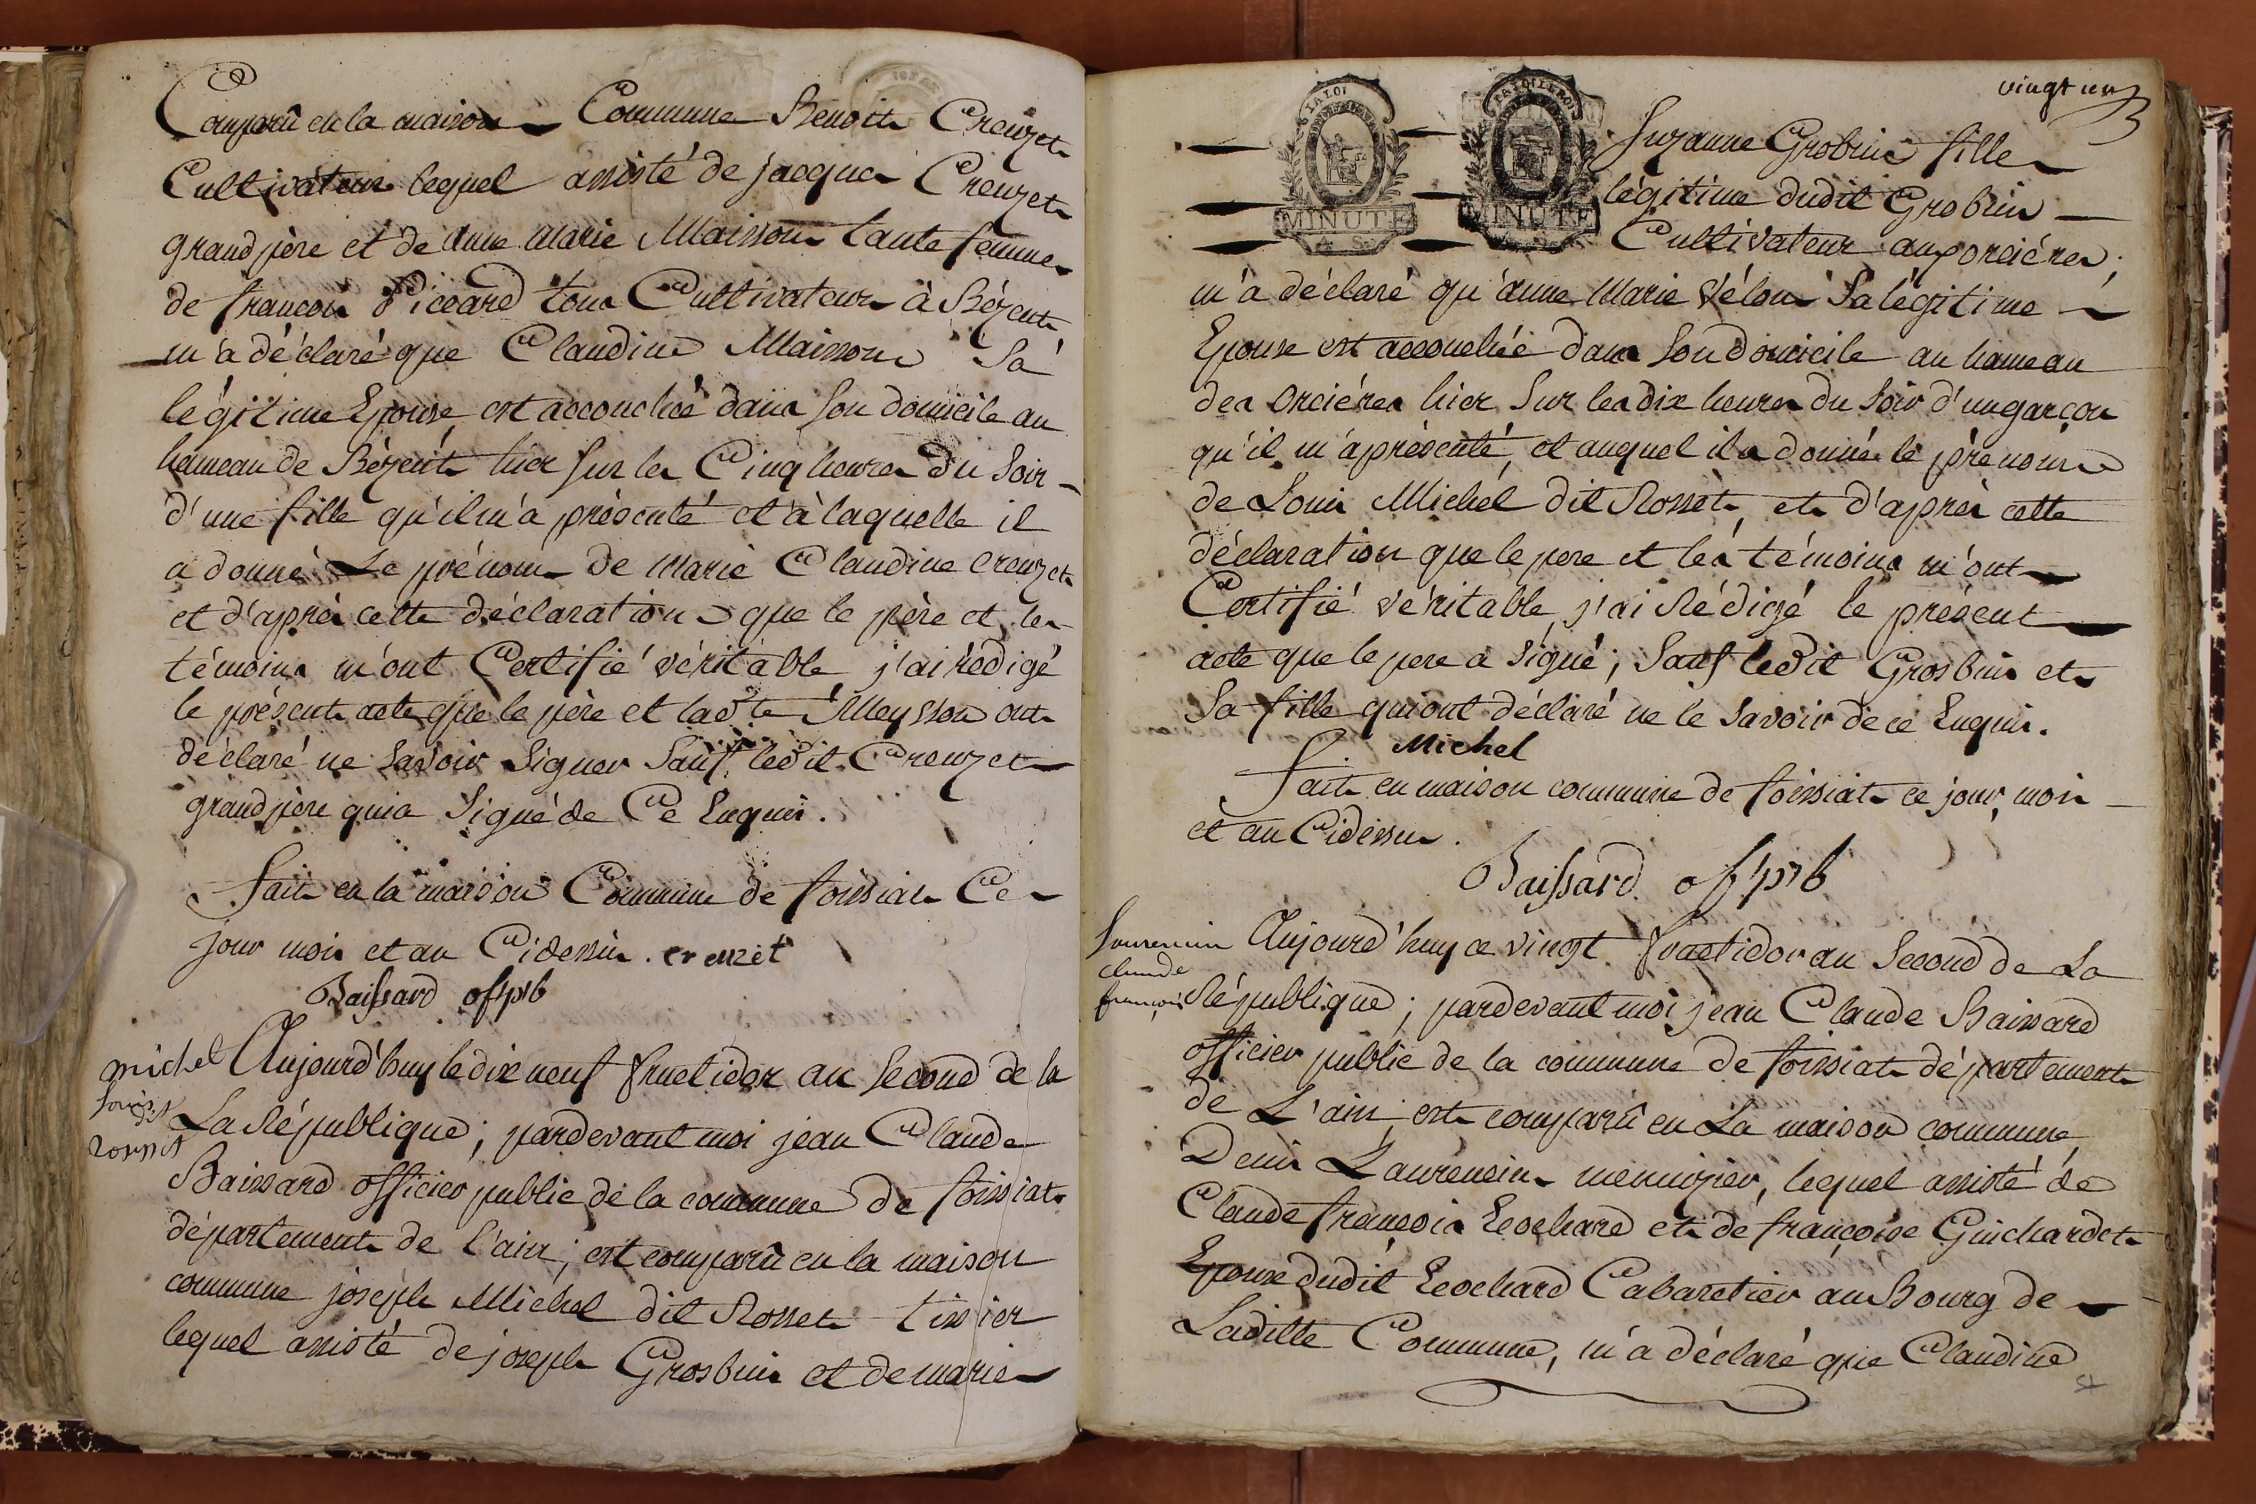 Comparû en la maison Commune Benoit Creuzet
Cultivateur lequel assisté de jacques Creuzet
grand père et de Anne Marie Maisson tante femme
de françois Piccard tous Cultivateurs à Bézent
m'a déclaré que Claudine Maisson Sa
légitime Epouse est accouchée dans son domicile au
hameau de Bézent hier sur les Cinq heures du Soir
d'une fille qu'il m'a présenté et à laquelle il
a donné Le prénom de Marie Claudine Creuzet
et d'après cette déclaration que le père et les
témoins m'ont Certifié véritable j'ai rédigé
le présent acte que le père et lad.te Meysson ont
déclaré ne Savoir Signer Sauf ledit Creuzet
grand père qui a Signé de Ce Enquis.
Fait en la maison Commune de foissiat Ce
jour mois et an Cidessus. creuzet
Baissard off pb
Michel
Louis
dit
Rosset
Aujourd'huy le dix neuf fructidor an Second de la
La République; pardevant moi jean Claude
Baissard officier public de la commune de foissiat
département de l'ain; est comparû en la maison
commune joseph Michel dit Rosset tissier
lequel assisté de joseph Grosbuis et de marie
vingt un
LA LOI
LA LOI LE ROI
MINUTE
4 S
MINUTE
Suzanne Grobuis fille
légitime dudit Grobuis
Cultivateur aux orciéres;
m'a déclaré qu'anne Marie Vélon Sa légitime
Epouse est accouchée dans Son domicile au hameau
des Orciéres hier Sur les dix heures du Soir d'un garçon
qu'il m'a présenté, et auquel il a donné le prénom
de Louis Michel dit Rosset, et d'après cette
déclaration que le pere et les témoins m'ont
Certifié véritable, j'ai Rédigé le présent
acte que le pere a Signé; Sauf ledit Grosbuis et
Sa fille qui ont déclaré ne le Savoir de ce Enquis.
Michel
Fait en maison commune de foissiat ce jour, mois
et an Cidessus.
Baissard off pb
Laurencin
claude
françois
Aujourd'huy ce vingt fructidor an Second de La
République; pardevant moi jean Claude Baissard
officier public de la commune de foissiat département
de L'ain; est comparû en La maison commune,
Denis Laurencin menuisier, lequel assisté de
Claude françois Leochard et de françoise Guichardet
Epouse dudit Leochard Cabaretier au Bourg de
Laditte Commune, m'a déclaré que Claudine